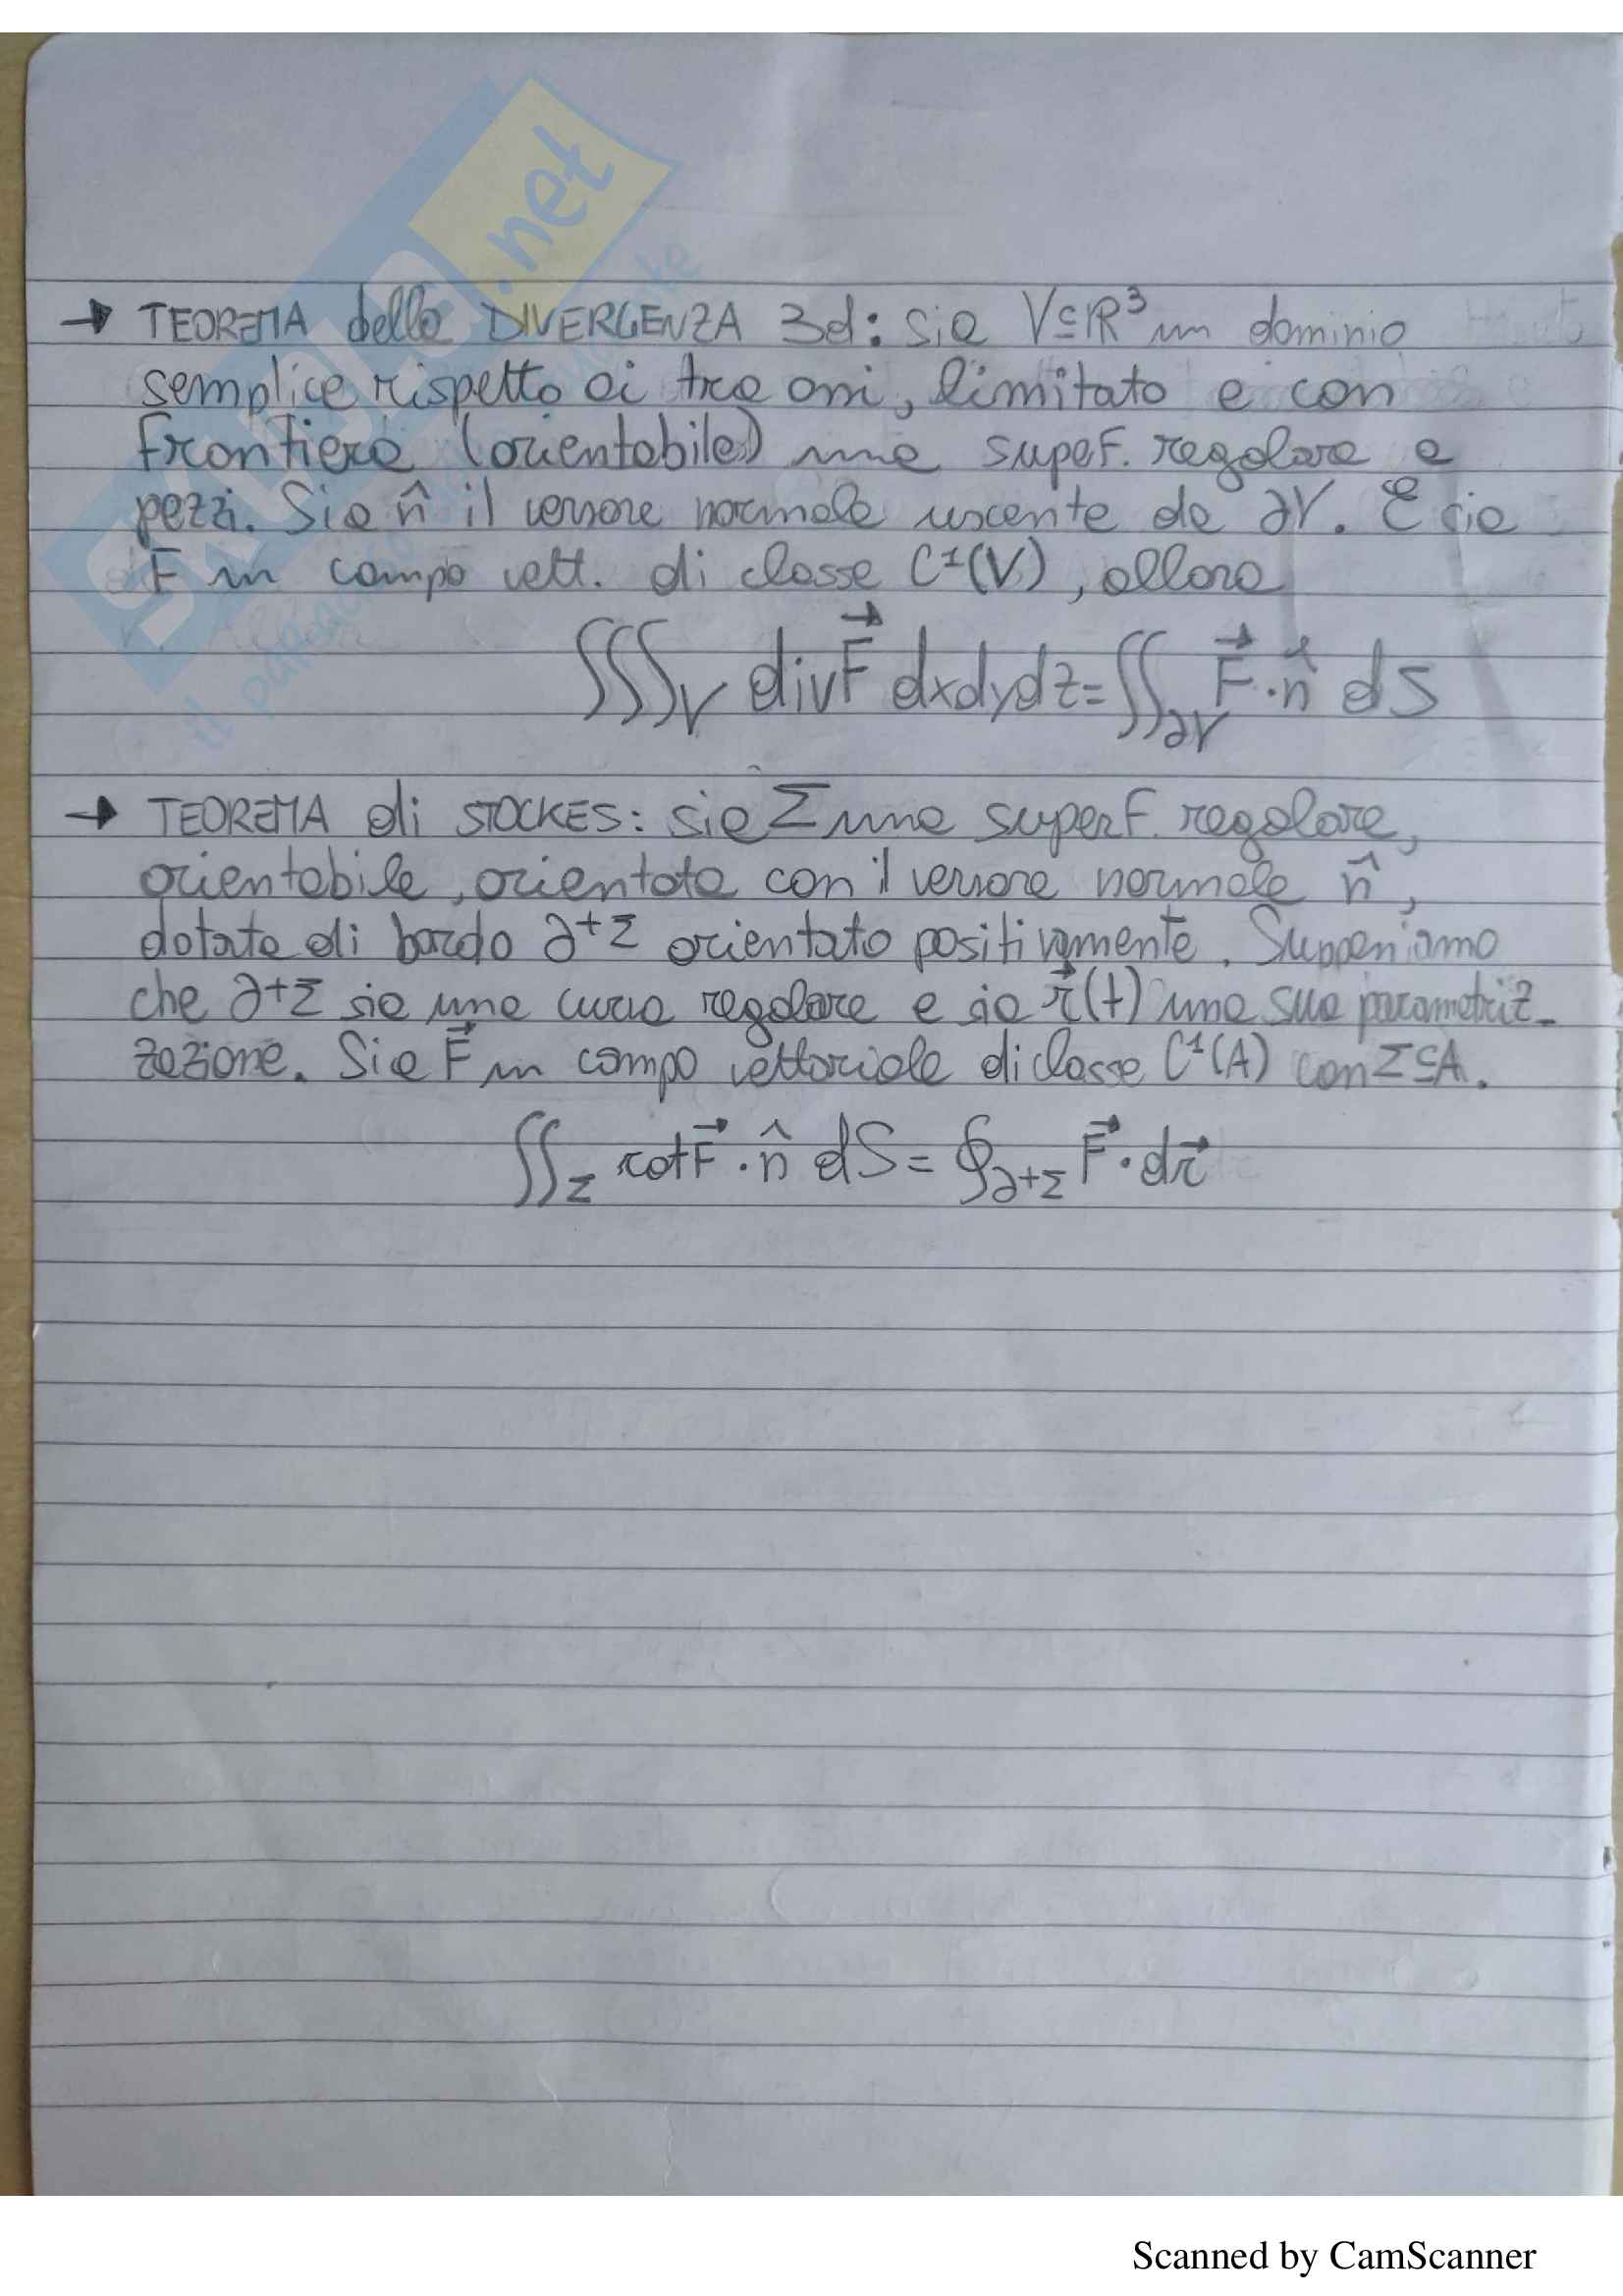 → TEOREMA della DIVERGENZA 3d: sia V⊆ℝ³ un dominio
semplice rispetto ai tre assi, limitato e con
frontiera (orientabile) una superf. regolare a
pezzi. Sia n̂ il versore normale uscente da ∂V. E sia
F un campo vett. di classe C¹(V), allora
∭_V divF⃗ dxdydz = ∬_∂V F⃗·n̂ dS
→ TEOREMA di STOCKES: sia Σ una superf. regolare,
orientabile, orientata con il versore normale n̂,
dotata di bordo ∂+Σ orientato positivamente. Supponiamo
che ∂+Σ sia una curva regolare e sia r⃗(t) una sua parametriz-
zazione. Sia F⃗ un campo vettoriale di classe C¹(A) con Σ⊆A.
∬_Σ rotF⃗·n̂ dS = ∮_∂+Σ F⃗·dr⃗
SKUOLA.net
Scanned by CamScanner